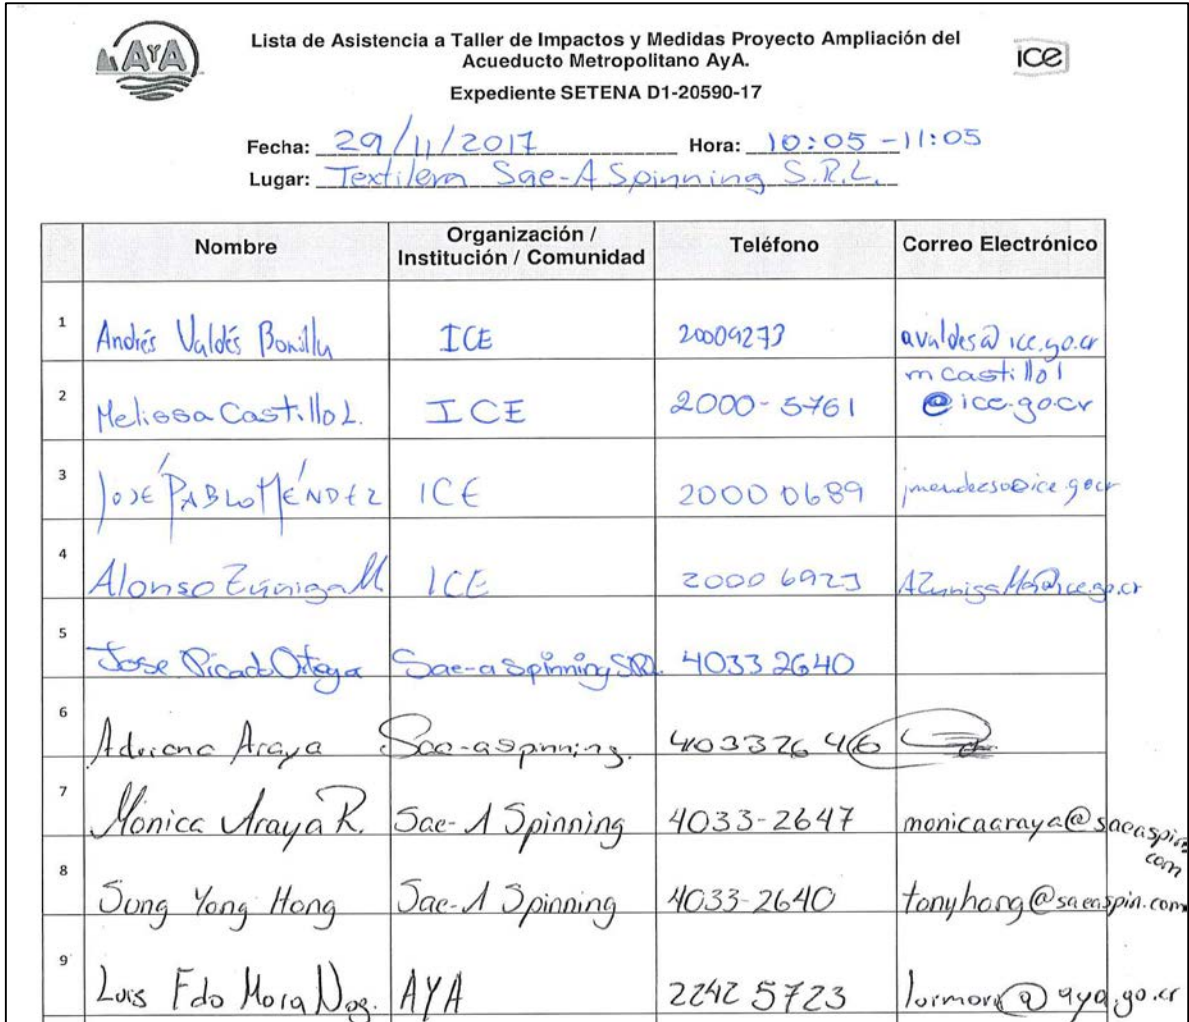 AYA
Lista de Asistencia a Taller de Impactos y Medidas Proyecto Ampliación del
Acueducto Metropolitano AyA.
ice
Expediente SETENA D1-20590-17
Fecha: 29/11/2017 Hora: 10:05-11:05
Lugar: Textilera Sae-A Spinning S.R.L.
Nombre Organización / Institución / Comunidad Teléfono Correo Electrónico
1 Andrés Valdés Bonilla ICE 20009273 avaldes@ice.go.cr
2 Melissa Castillo L. ICE 2000-5761 mcastillol
@ice.go.cr
3 JOSÉ PABLO MÉNDEZ ICE 20000689
4 Alonso Zúniga M ICE 20006923
5 Jose Picado Ortega Sae-a Spinning SRL. 40332640
6 Adriana Araya Sae-a Spinning. 40332646
7 Mónica Araya R. Sae-A Spinning 4033-2647 monicaaraya@saeaspin
com
8 Sung Yong Hong Sae-A Spinning 4033-2640 tonyhong@saeaspin.com
9 Luis Fdo Mora AYA 2242 5723 @aya.go.cr